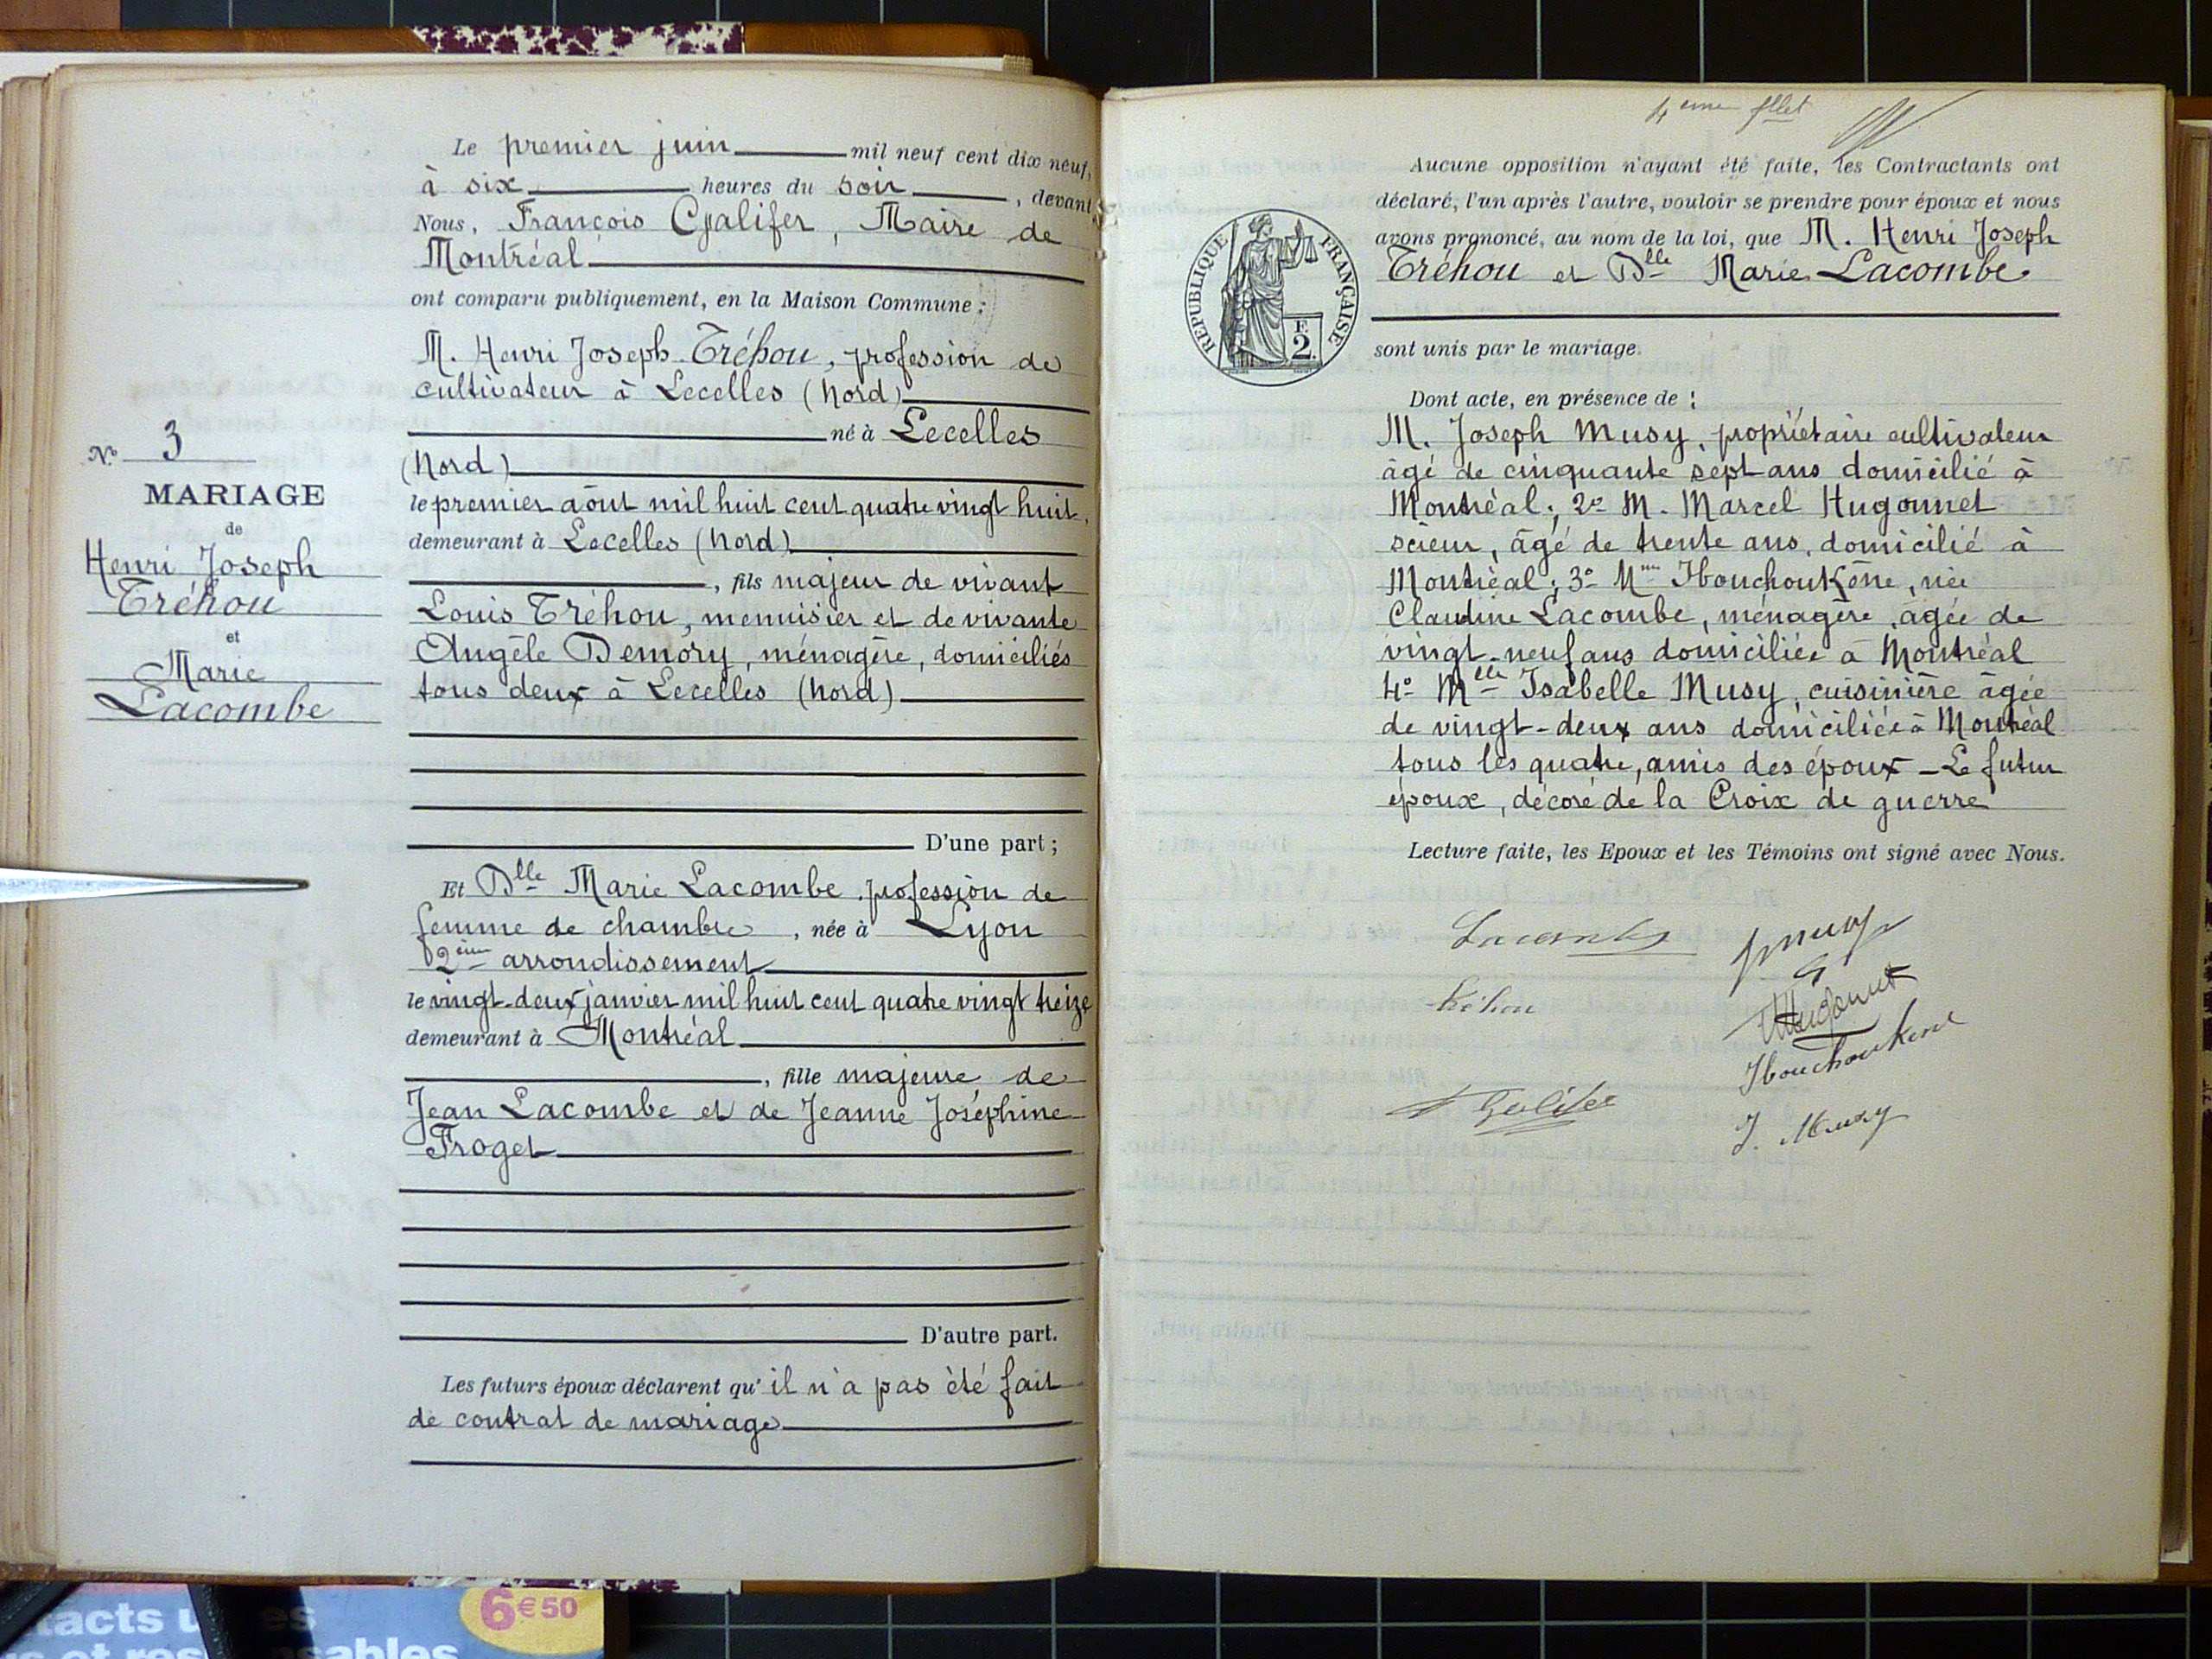 Le premier juin mil neuf cent dix neuf,
à six heures du soir, devant
Nous, François Gjalifer, Maire de
Montréal
ont comparu publiquement, en la Maison Commune :
M. Henri Joseph Tréhou, profession de
cultivateur à Lecelles (Nord)
né à Lecelles
(Nord)
le premier aôut mil huit cent quatre vingt huit,
demeurant à Lecelles (Nord)
, fils majeur de vivant
Louis Tréhou, menuisier et de vivante
Angèle Demory, ménagère, domiciliés
tous deux à Lecelles (Nord)
D'une part ;
Et Dlle Marie Lacombe, profession de
femme de chambre, née à Lyon
2ème arrondissement
le vingt-deux janvier mil huit cent quatre vingt treize
demeurant à Montréal
, fille majeure de
Jean Lacombe et de Jeanne Joséphine
Froget
D'autre part.
Les futurs époux déclarent qu'il n'a pas été fait
de contrat de mariage
No 3
MARIAGE
de
Henri Joseph
Tréhou
et
Marie
Lacombe
4eme fllet
Aucune opposition n'ayant été faite, les Contractants ont
déclaré, l'un après l'autre, vouloir se prendre pour époux et nous
avons prononcé, au nom de la loi, que M. Henri Joseph
Tréhou et Dlle Marie Lacombe
sont unis par le mariage.
REPUBLIQUE FRANÇAISE
F.
2
Dont acte, en présence de :
M. Joseph Musy, propriétaire cultivateur
âgé de cinquante sept ans domicilié à
Montréal ; 2o M. Marcel Hugonnet
scieur, âgé de trente ans, domicilié à
Montréal ; 3o Mme IbouchouKène, née
Claudine Lacombe, ménagère, âgée de
vingt-neuf ans domiciliée à Montréal
4o Melle Isabelle Musy, cuisinière âgée
de vingt-deux ans domiciliée à Montréal
tous les quatre, amis des époux - Le futur
époux, décoré de la Croix de guerre
Lecture faite, les Epoux et les Témoins ont signé avec Nous.
Lacombe
Jmusy
Tréhou
Hugonnet
Ibouchoukene
Galifer
J. Musy
6€50